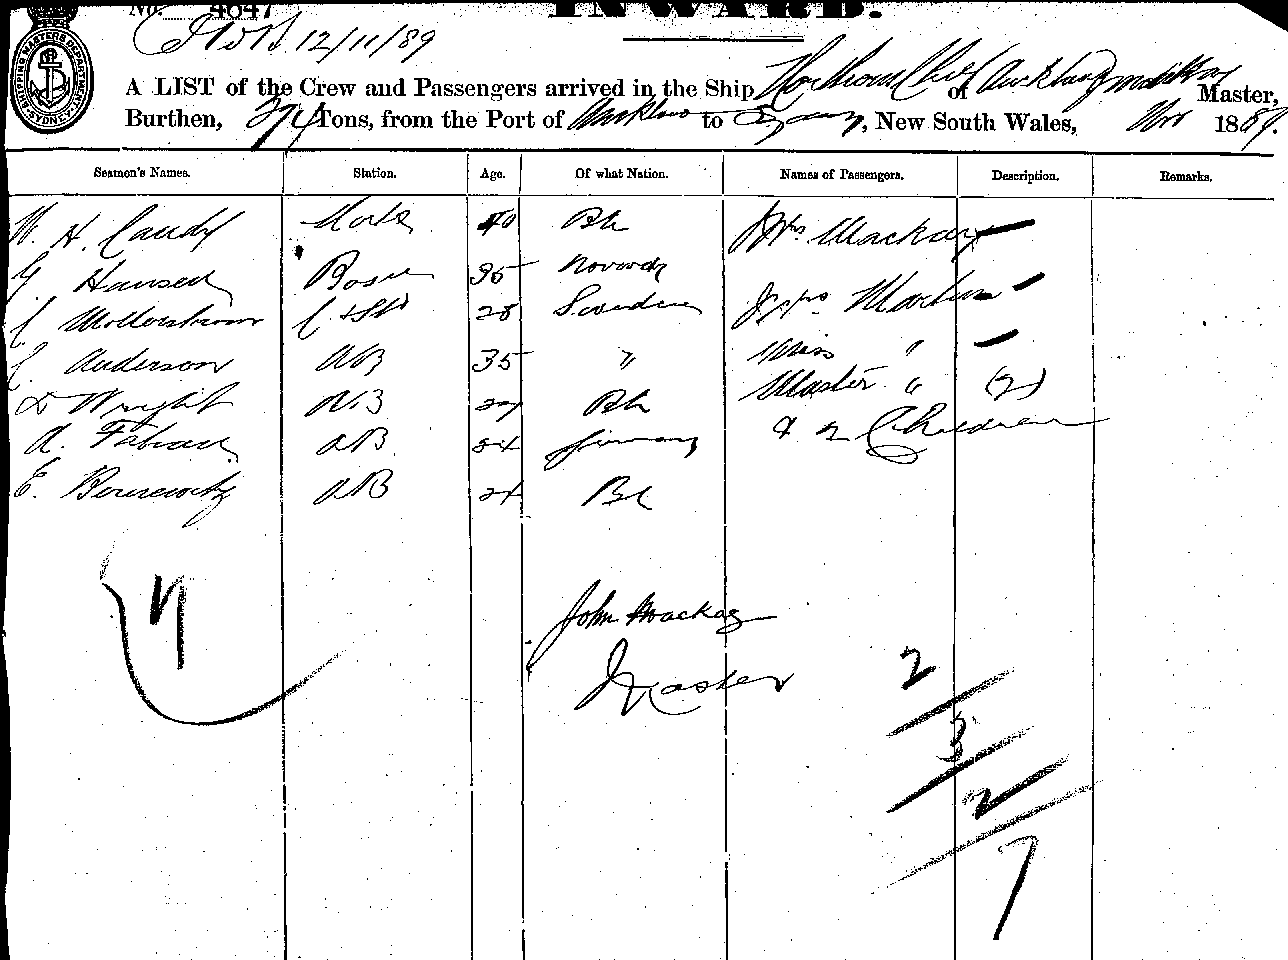 No. 4647
INWARD.
12/11/89
SHIPPING MASTERS DEPARTMENT SYDNEY
A LIST of the Crew and Passengers arrived in the Ship Northern Chief of Auckland Master,
Burthen, Tons, from the Port of Auckland to Sydney, New South Wales, Nov 1889.
Seamen's Names. Station. Age. Of what Nation. Names of Passengers. Description. Remarks.
W. H. Candy Mate 40 Bh Mrs Mackay —
Hansen Bosn 35 Norway
C Mollerstrom C & Std 28 Sweden Mrs Martin —
C Anderson AB 35 " Miss " —
D Wright AB 27 Bh Master " (2)
A. Fabian AB 24 Germany & 2 Children
E. AB 24 Bh
7
John Mackay
Master
2
3
2
7